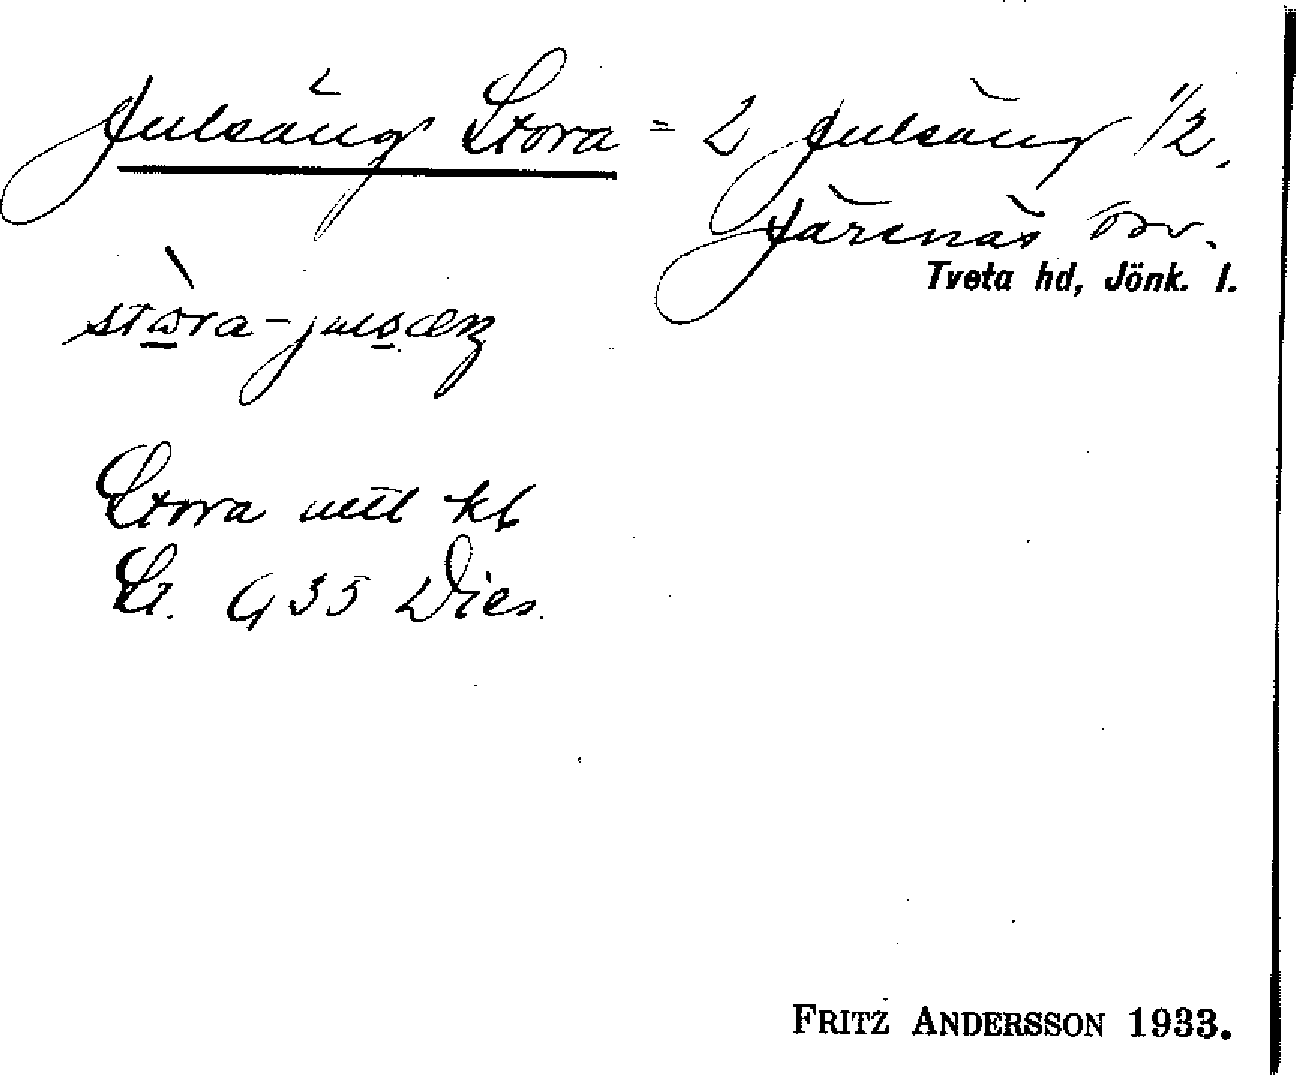 Julsäng Stora = 2 Julsäng 1/2.
Järsnäs sn.
Tveta hd, Jönk. l.
stora-julsäŋ
Stora utt kl
Lt. G 35 Dies.
FRITZ ANDERSSON 1933.